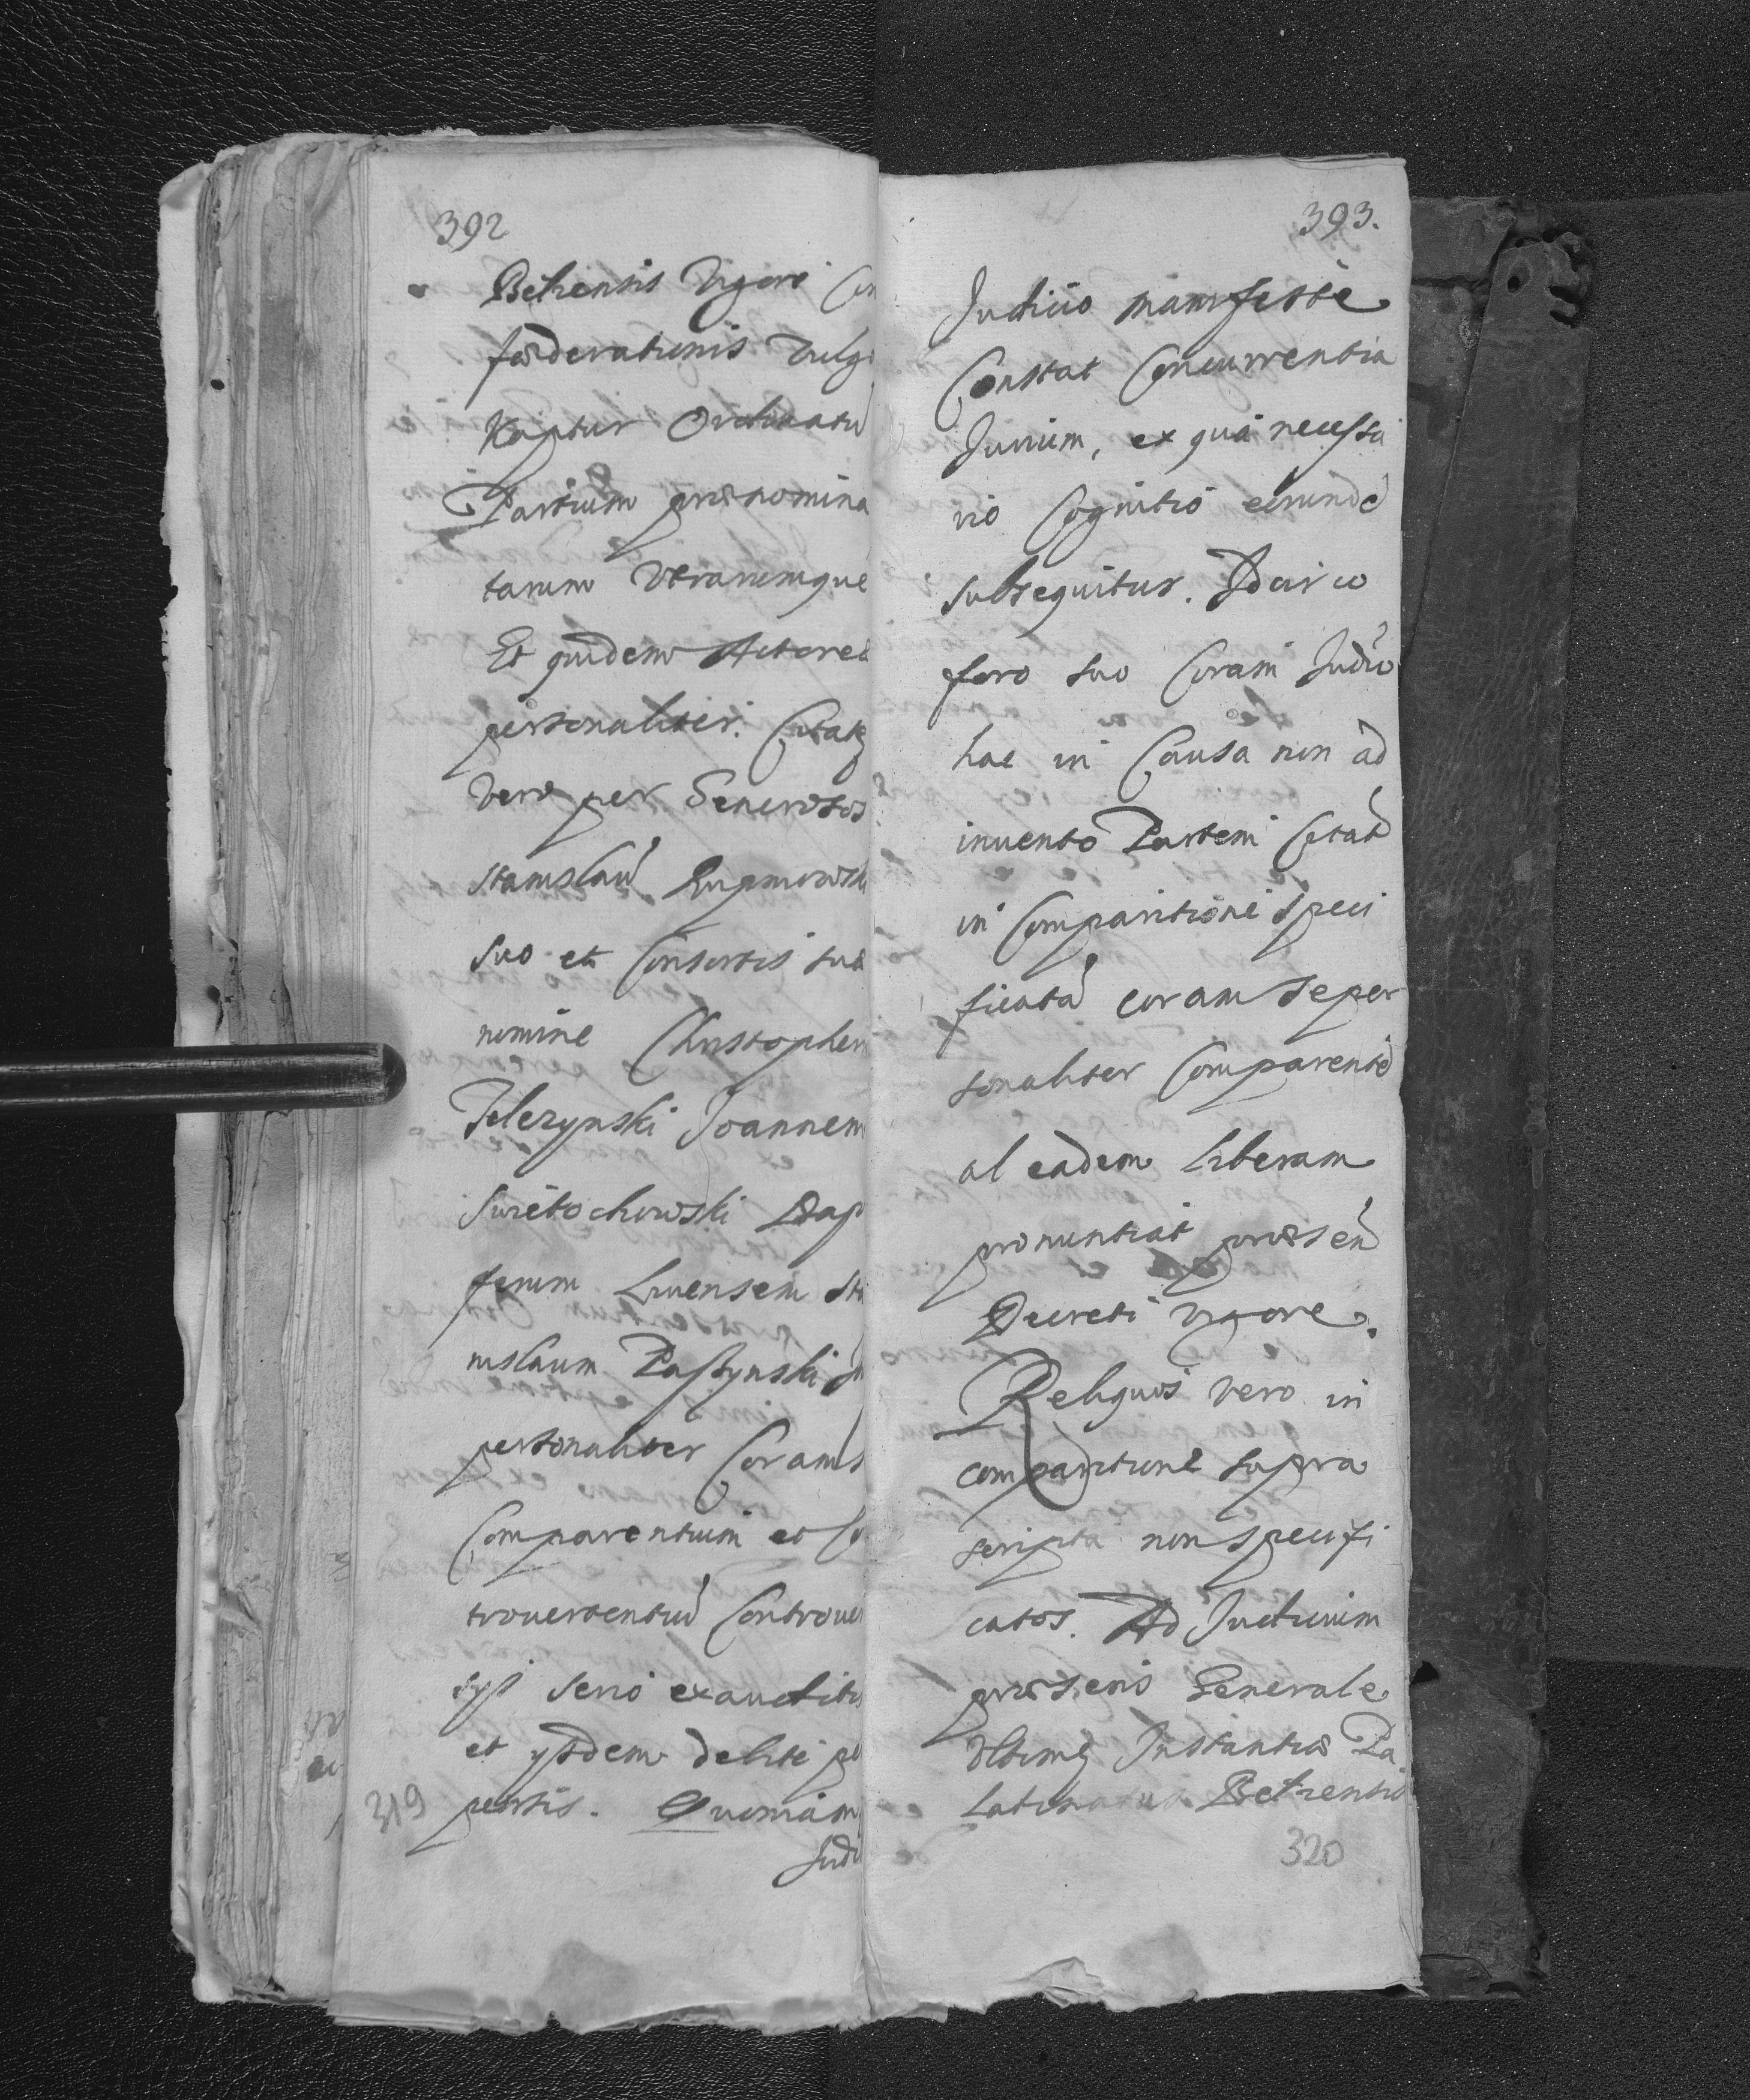 392
Belzensis Vigore Con
foederationis Vulgo
Kaptur Ordinatu
Partium praenomina
tarum Utrarumque
Et quidem Actorea
personaliter. Citatae
vero per Generosos
Stanislau
suo et Consortis suae
nomine Christopheru
Zelezynski Joannem
Swietochowski Dap
ferum Livensem Sta
nislaum Pastynski
personaliter Coram
Comparentium et Co
trovertentiu Controver
sys serio exauditis
et ysdem debite
pensis. Quoniam
Judi
319
393.
Judicio manifeste
Constat Concurrentia
Jurium, ex qua necessa
rio Cognitio eorunde
subsequitur. Idcirco
foro suo Coram Judio
hac in Causa non ad
invento Partem Citata
in Comparitione speci
ficata coram se per
sonaliter Comparente
ab eadem Liberam
pronuntiat praesen
Decreti vigore.
Reliquos vero in
comparitione supra
scripta non specifi
catos. Ad Judicium
praesens Generale
Ultimae Instantiae Pa
latinatus Belzensis
320